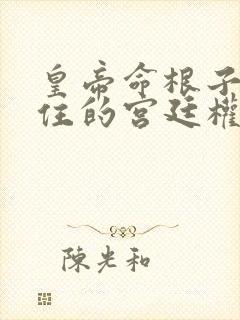 皇帝命根子
住的宫廷權
陳光和